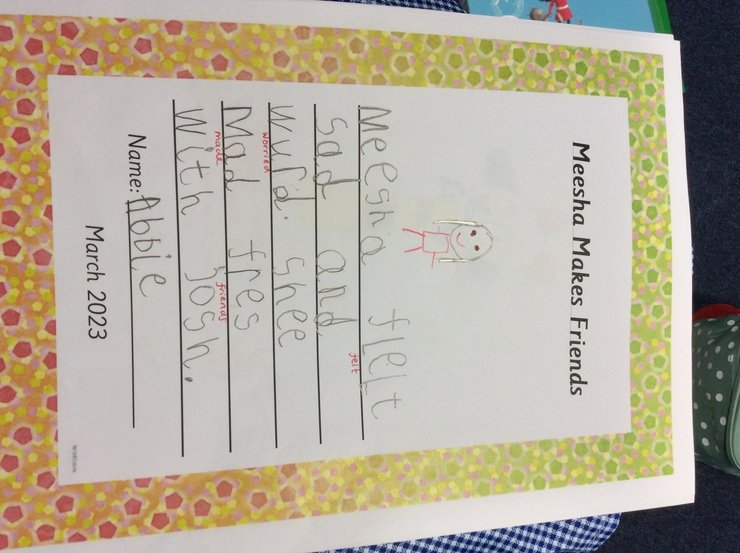 Meesha Makes Friends
Meesha fleLt
felt
sad and
wurd. shee
worried
Mad fres
made friends
with Josh.
Name: Abbie
March 2023